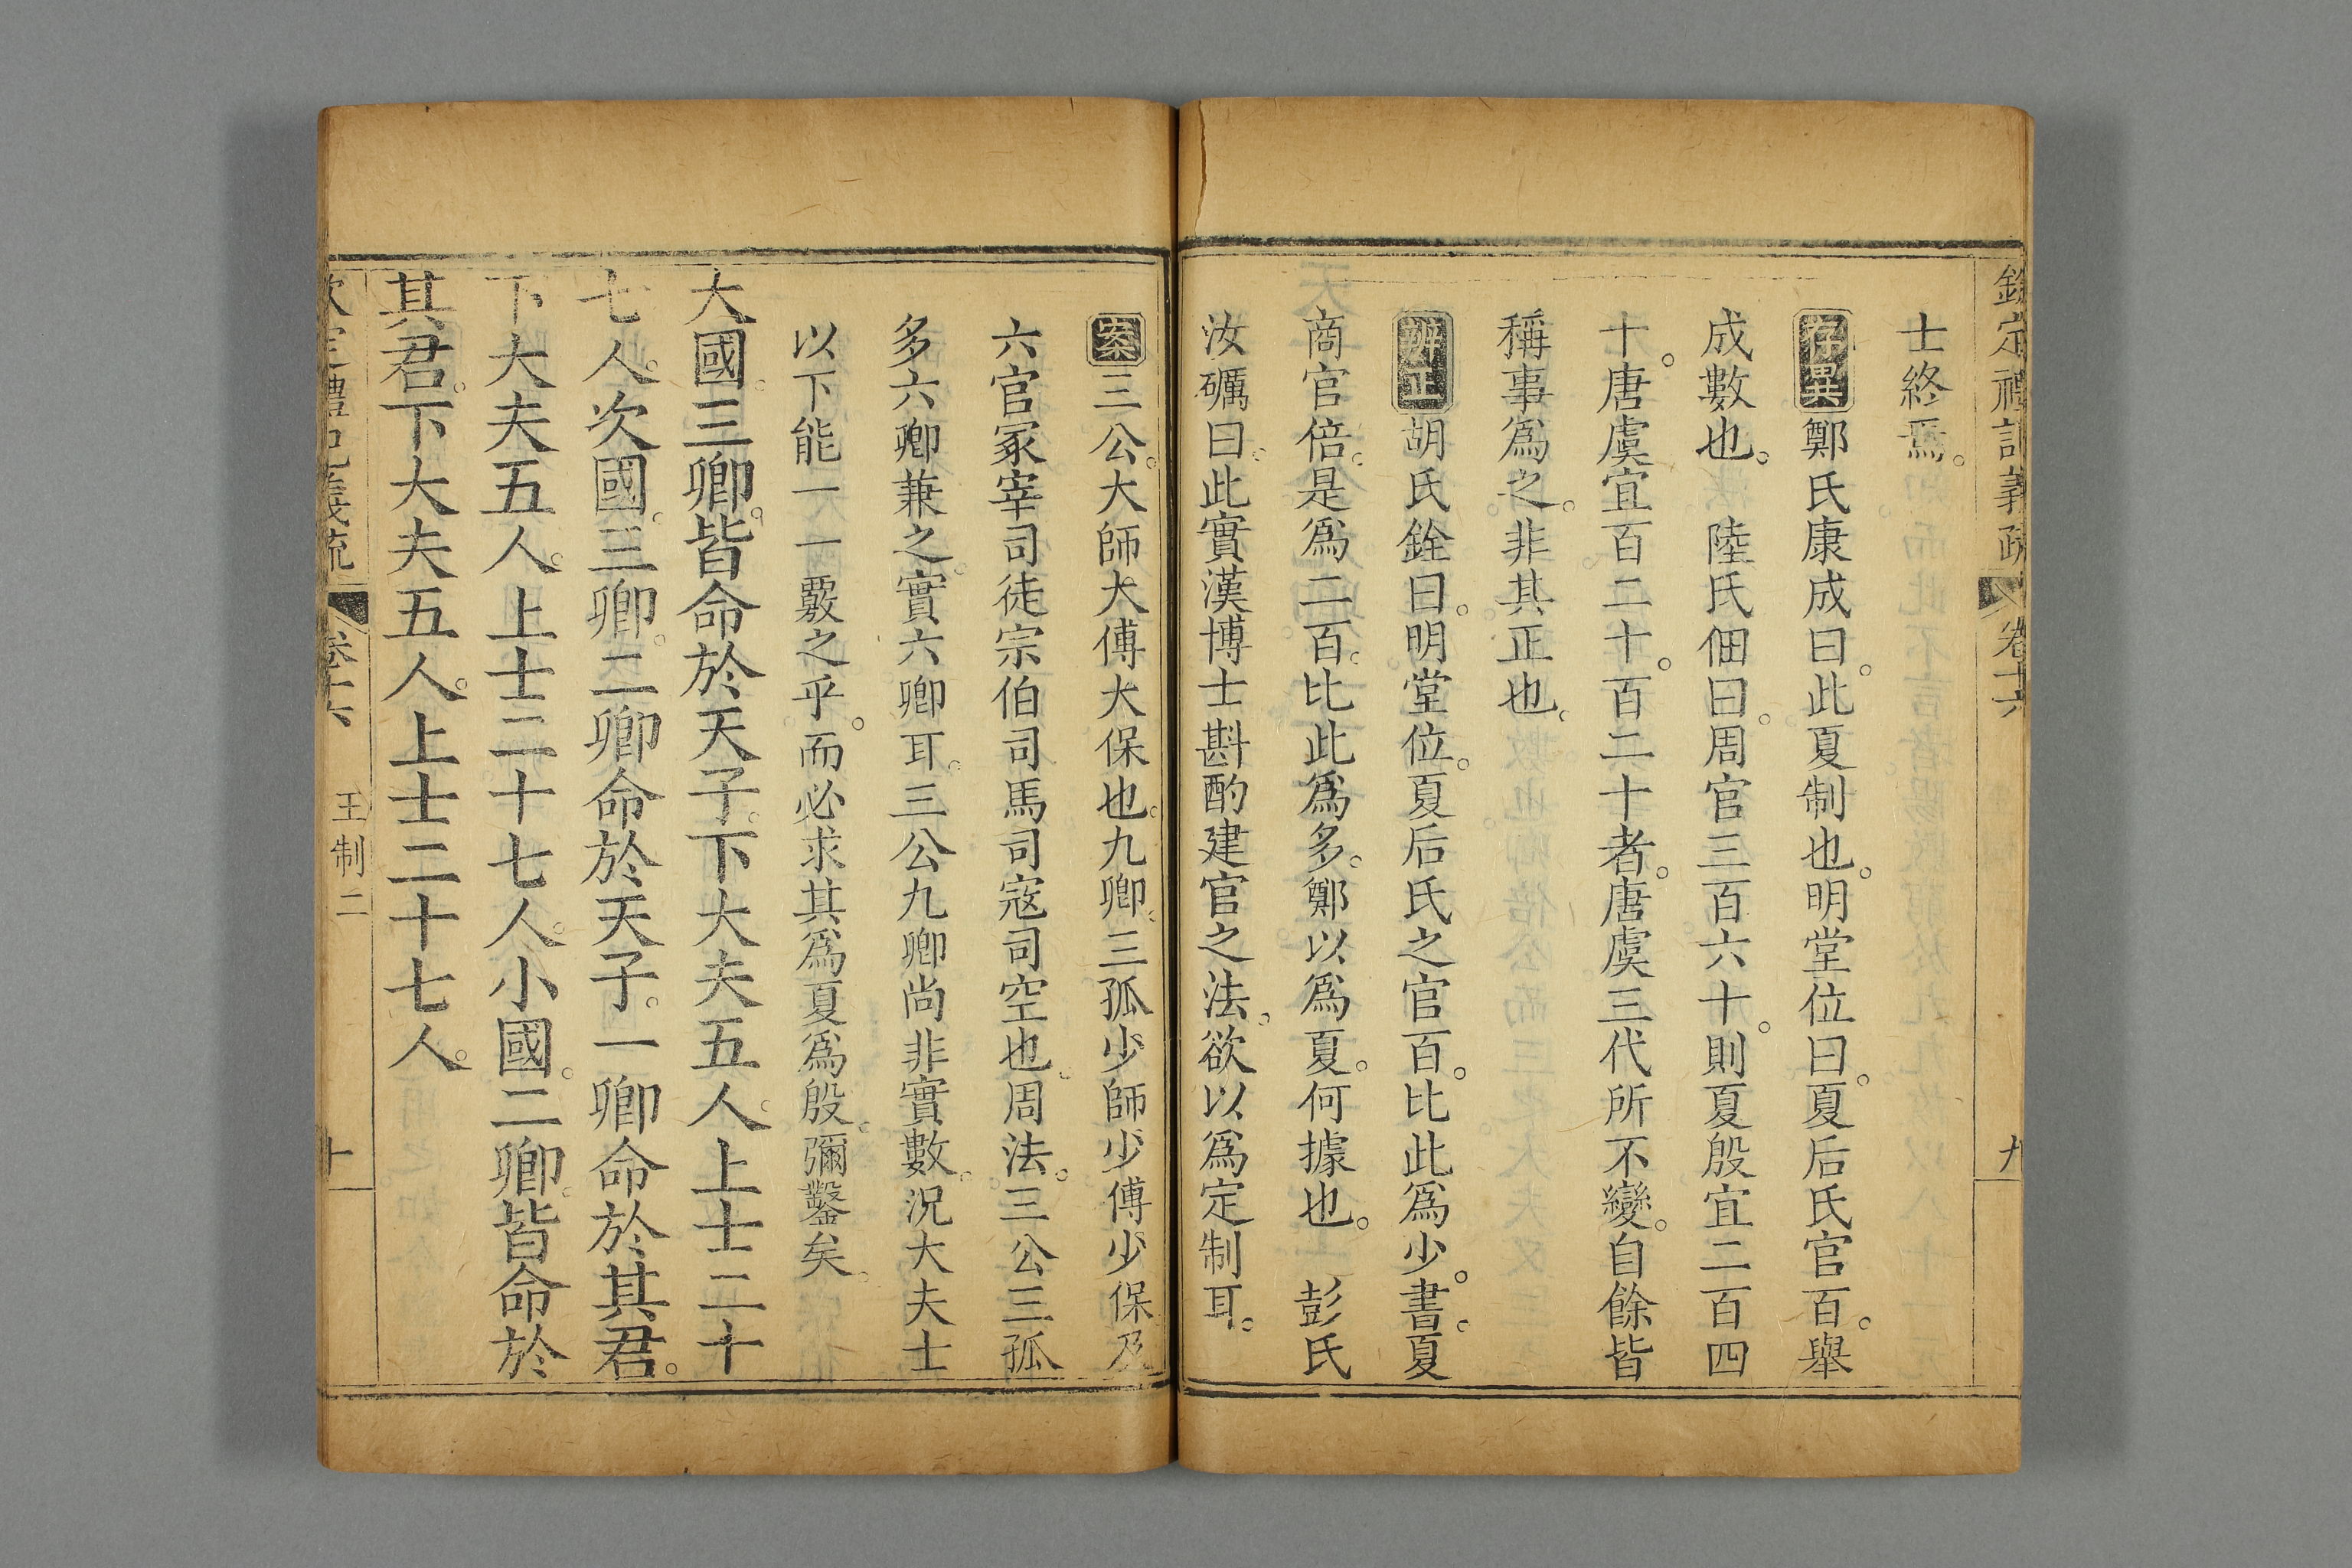 欽定禮記義疏 卷十六 九
士終焉。
存異鄭氏康成曰。此夏制也。明堂位曰。夏后氏官百。舉
成數也。 陸氏佃曰。周官三百六十。則夏殷宜二百四
十。唐虞宜百二十。百二十者。唐虞三代所不變。自餘皆
稱事爲之。非其正也。
辨正胡氏銓曰。明堂位。夏后氏之官百。比此爲少。書。夏
商官倍。是爲二百。比此爲多。鄭以爲夏。何據也。 彭氏
汝礪曰。此實漢博士斟酌建官之法。欲以爲定制耳。
案三公。大師大傅大保也。九卿。三孤少師少傅少保及
六官冢宰司徒宗伯司馬司寇司空也。周法。三公三孤
多六卿兼之。實六卿耳。三公九卿尚非實數。況大夫士
以下能一一覈之乎。而必求其爲夏爲殷。彌鑿矣。
大國。三卿。皆命於天子。下大夫五人。上士二十
七人。次國。三卿。二卿命於天子。一卿命於其君。
下大夫五人。上士二十七人。小國。二卿。皆命於
其君。下大夫五人。上士二十七人。
欽定禮記義疏 卷十六 王制二 十